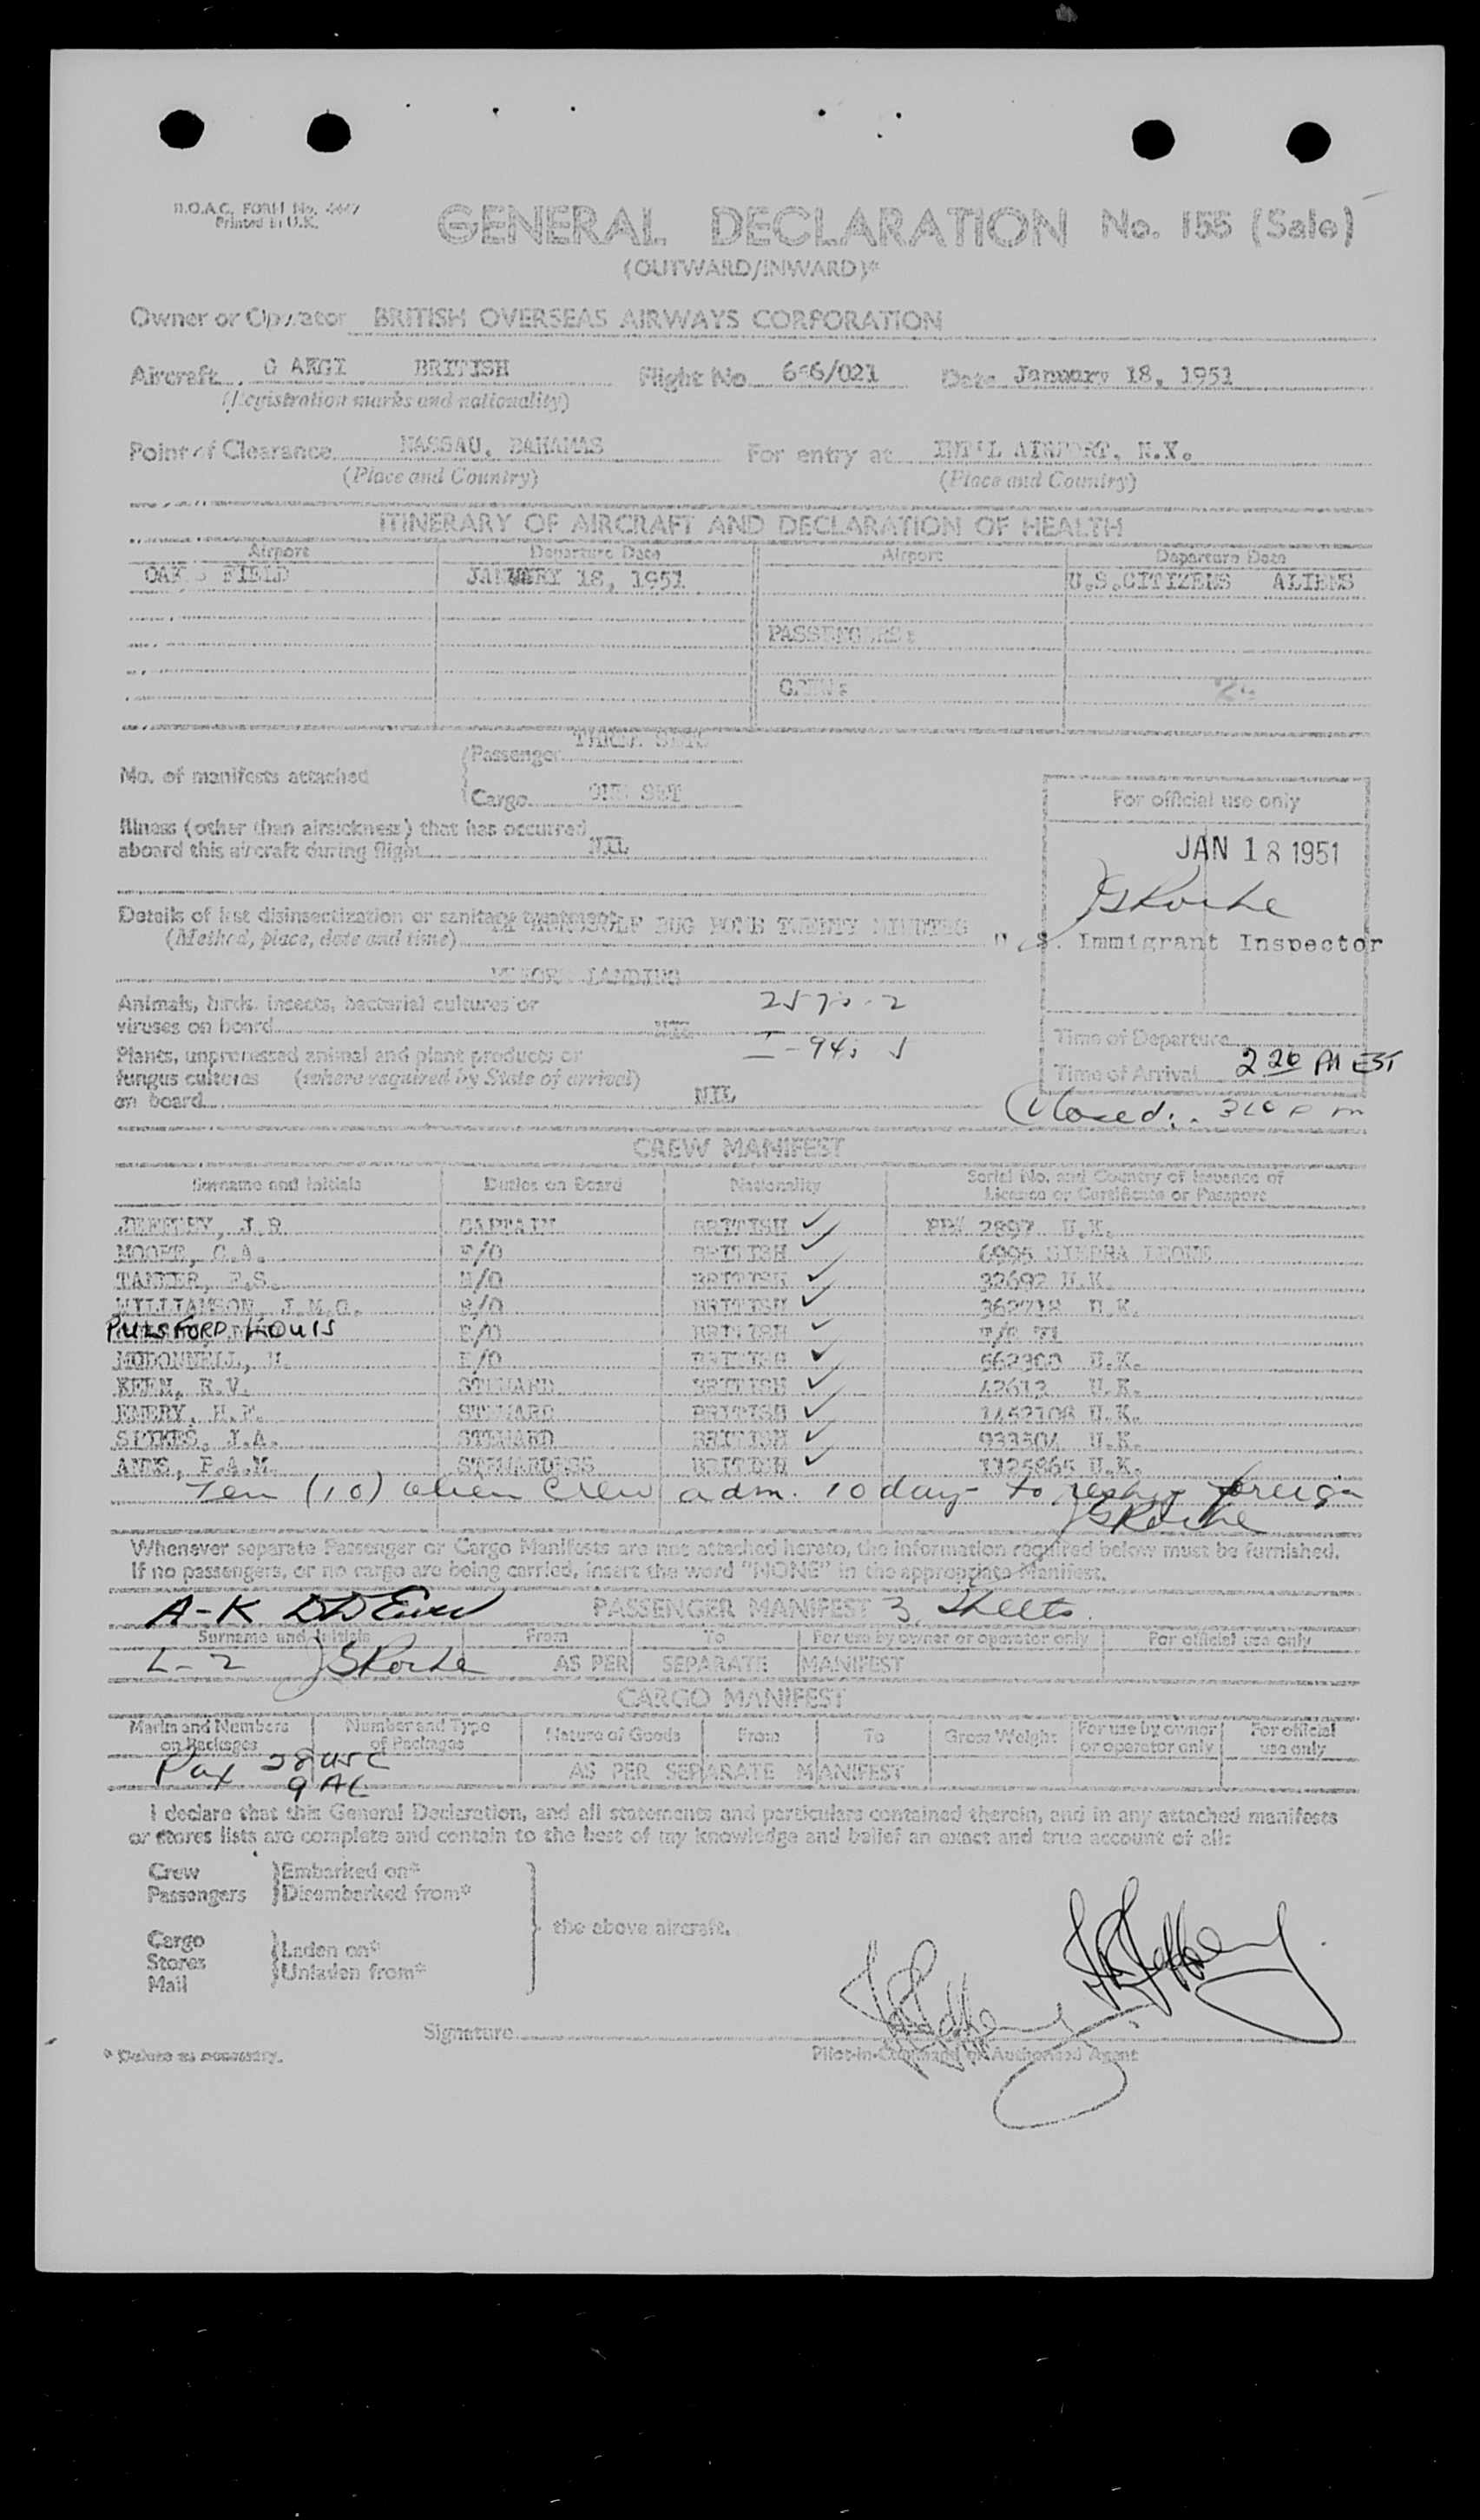 Printed in U.K.
GENERAL DECLARATION No. 155 (Sale)
(OUTWARD/INWARD)*
Owner or Operator BRITISH OVERSEAS AIRWAYS CORPORATION
Aircraft BRITISH Flight No. Date January 18, 1951
(Registration marks and nationality)
Point of Clearance NASSAU, BAHAMAS For entry at
(Place and Country) (Place and Country)
ITINERARY OF AIRCRAFT AND DECLARATION OF HEALTH
Airport Departure Date Airport Departure Date
FIELD JANUARY 18, 1951 U.S.CITIZENS ALIENS
PASSENGERS:
No. of manifests attached
Passenger THREE SETS
Cargo ONE SET
For official use only
Illness (other than airsickness) that has occurred
aboard this aircraft during flight NIL
JAN 18 1951
JS Roche
Details of last disinsectization or sanitary treatment BUG BOMB TWENTY MINUTES
(Method, place, date and time)
S. Immigrant Inspector
BEFORE LANDING
Animals, birds, insects, bacterial cultures or
viruses on board
Plants, unprocessed animal and plant products or I-94:
fungus cultures (where required by State of arrival)
on board NIL
Time of Departure
Time of Arrival 2 20 PM EST
Closed: 310 pm
CREW MANIFEST
Surname and Initials Duties on Board Nationality Serial No. and Country of Issuance of
Licence or Certificate or Passport
CAPTAIN BRITISH 2897 U.K.
MOORE, C.A. BRITISH SIERRA LEONE
BRITISH 32692 U.K.
WILLIAMSON, J.M.O. BRITISH 362718 U.K.
PULSFORD LOUIS BRITISH
MCDONNELL, BRITISH U.K.
KEEN, R.V. STEWARD BRITISH 42613 U.K.
EMERY, H.F. STEWARD BRITISH 1452108 U.K.
SPIKES, J.A. STEWARD BRITISH 933504 U.K.
STEWARDESS BRITISH 1125865 U.K.
Ten (10) alien crew adm. 10 days to reship foreign
JS Roche
Whenever separate Passenger or Cargo Manifests are not attached hereto, the information required below must be furnished.
If no passengers, or no cargo are being carried, insert the word "NONE" in the appropriate Manifest.
A-K PASSENGER MANIFEST 3 Sheets
Surname and Initials From To For use by owner or operator only For official use only
L-Z JS Roche AS PER SEPARATE MANIFEST
CARGO MANIFEST
Marks and Numbers on Packages Number and Type of Packages Nature of Goods From To Gross Weight For use by owner or operator only For official use only
Pax 28 USC
9 AL
AS PER SEPARATE MANIFEST
I declare that this General Declaration, and all statements and particulars contained therein, and in any attached manifests
or stores lists are complete and contain to the best of my knowledge and belief an exact and true account of all:
Crew Embarked on*
Passengers Disembarked from*
the above aircraft.
Cargo Laden on*
Stores Unladen from*
Mail
Signature
Pilot-in-Command or Authorised Agent
* Delete as necessary.